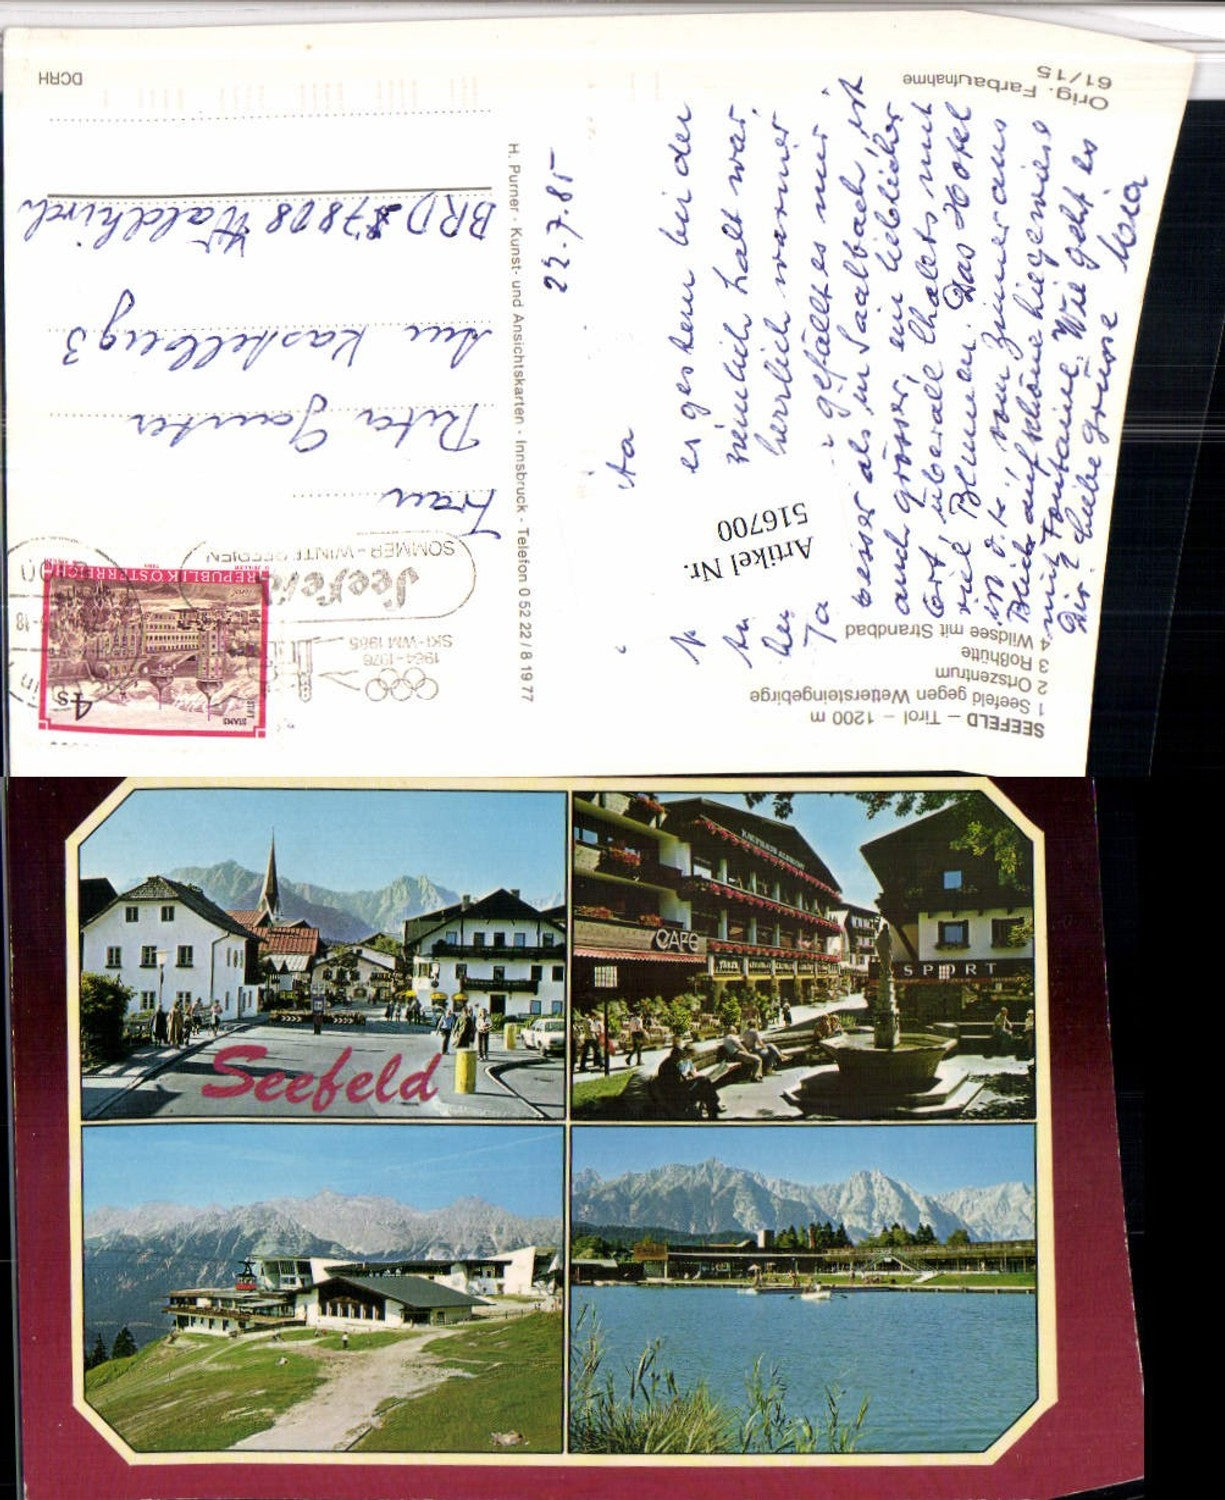 DCRH
Orig. Farbaufnahme
61/15
SEEFELD – Tirol – 1200 m
1 Seefeld gegen Wettersteingebirge
2 Ortszentrum
3 Roßhütte
4 Wildsee mit Strandbad
H. Purner · Kunst- und Ansichtskarten · Innsbruck · Telefon 0 52 22 / 8 19 77
1964 - 1976
SKI - WM 1985
Seefeld
SOMMER - WINTER
REPUBLIK ÖSTERREICH
4 S
STIFT
STAMS
Frau
Rita
Am Kastelberg 3
BRD 7808 Waldkirch
Artikel Nr.
516700
22.7.85
er gestern bei der
ziemlich kalt war,
herrlich warmer
gefällt es mir
besser als in Saalbach, ist
auch grösser, ein lieblicher
Ort, überall Chalets mit
viel Blumen. Das Hotel
ist o.k., vom Zimmer aus
Blick auf schöne Liegewiese
mit Fontaine. Wie geht es
Dir? Liebe Grüsse
Seefeld
CAFE
SPORT